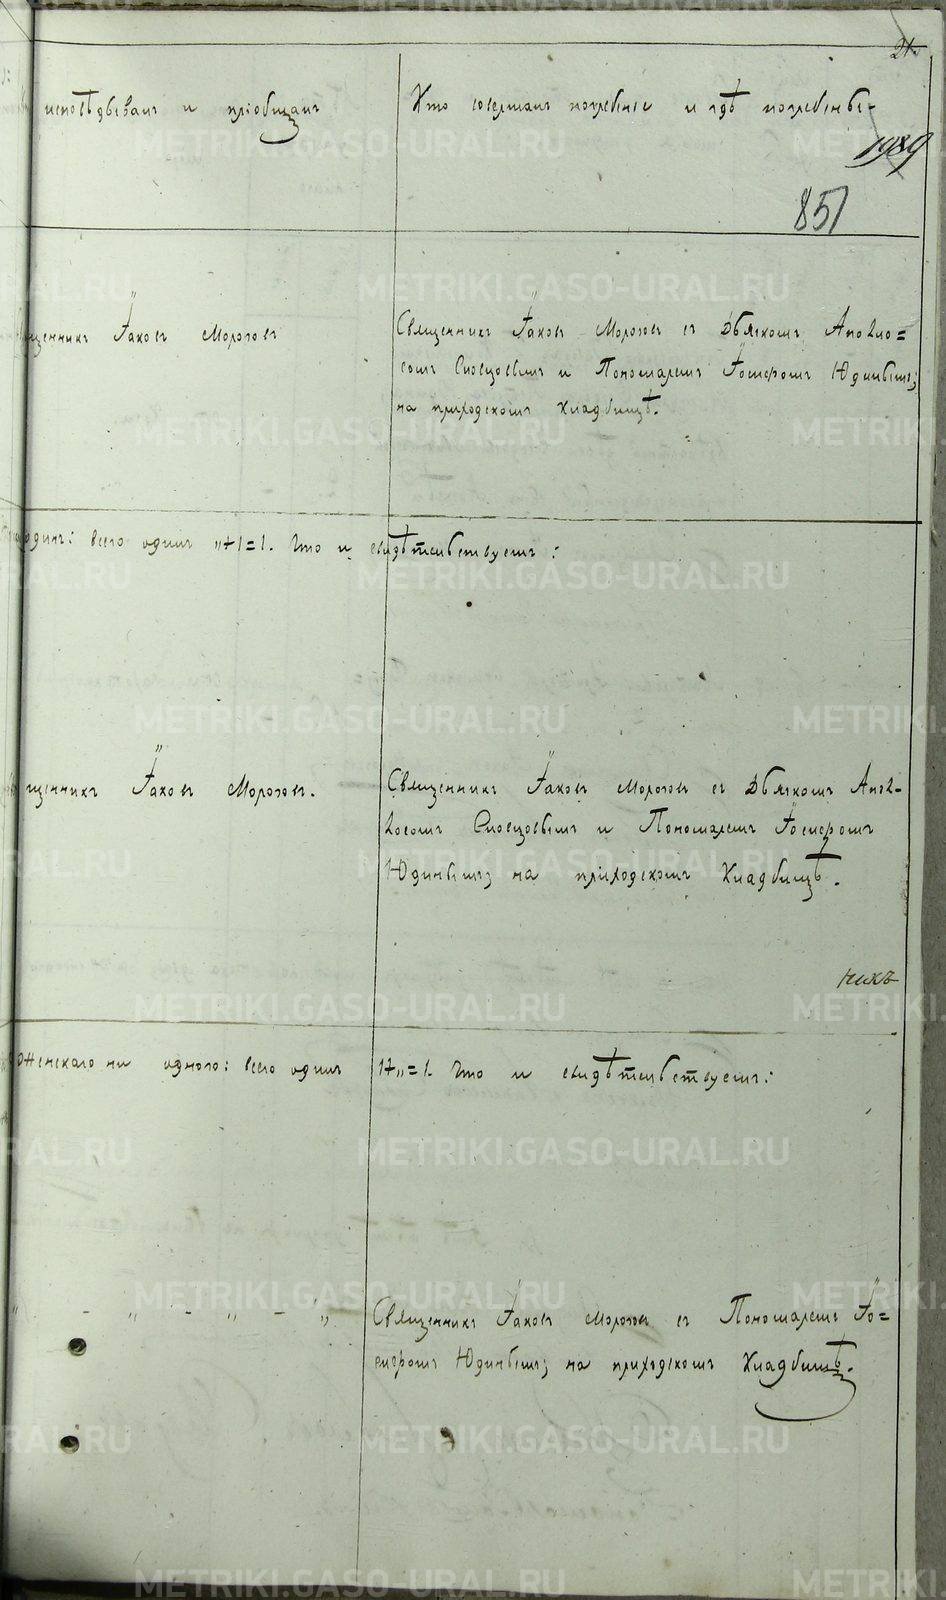 21.
исповѣдывалъ и пріобщалъ
Кто совершалъ погребеніе и гдѣ погребены.
1989
851
щенникъ Іаковъ Морозовъ
Священникъ Іаковъ Морозовъ съ Дьячкомъ
Словцовымъ и Пономаремъ Іосифомъ Юдинымъ;
на приходскомъ кладбищѣ.
одинъ: всего одинъ „+1=1. Что и свидѣтельствуемъ:
щенникъ Іаковъ Морозовъ.
Священникъ Іаковъ Морозовъ съ Дьячкомъ
Словцовымъ и Пономаремъ Іосифомъ
Юдинымъ; на приходскомъ Кладбищѣ.
никъ
женскаго ни одного: всего одинъ 1+„=1. Что и свидѣтельствуемъ:
„ - „ - „ - „
Священникъ Іаковъ Морозовъ съ Пономаремъ Іо=
сифомъ Юдинымъ; на приходскомъ Кладбищѣ.
METRIKI.GASO-URAL.RU